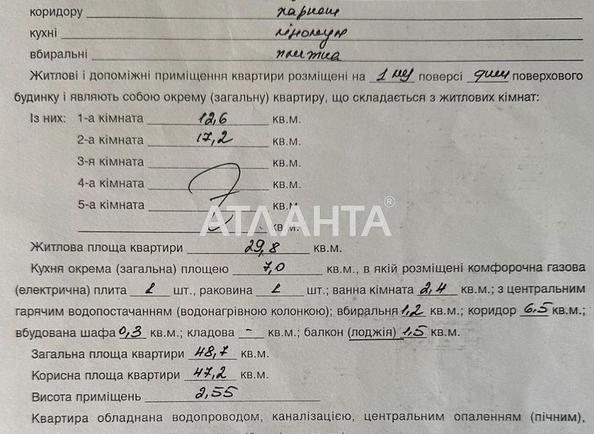 коридору паркет
кухні лінолеум
вбиральні плитка
Житлові і допоміжні приміщення квартири розміщені на 1 му поверсі поверхового
будинку і являють собою окрему (загальну) квартиру, що складається з житлових кімнат:
Із них: 1-а кімната 12,6 кв.м.
2-а кімната 17,2 кв.м.
3-я кімната кв.м.
4-а кімната кв.м.
5-а кімната кв.м.
кв.м.
АТЛАНТА®
Житлова площа квартири 29,8 кв.м.
Кухня окрема (загальна) площею 7,0 кв.м., в якій розміщені комфорочна газова
(електрична) плита 1 шт., раковина 1 шт.; ванна кімната 2,4 кв.м.; з центральним
гарячим водопостачанням (водонагрівною колонкою); вбиральня 1,2 кв.м.; коридор 6,5 кв.м.;
вбудована шафа 0,3 кв.м.; кладова - кв.м.; балкон (лоджія) 1,5 кв.м.
Загальна площа квартири 48,7 кв.м.
Корисна площа квартири 47,2 кв.м.
Висота приміщень 2,55
Квартира обладнана водопроводом, каналізацією, центральним опаленням (пічним),